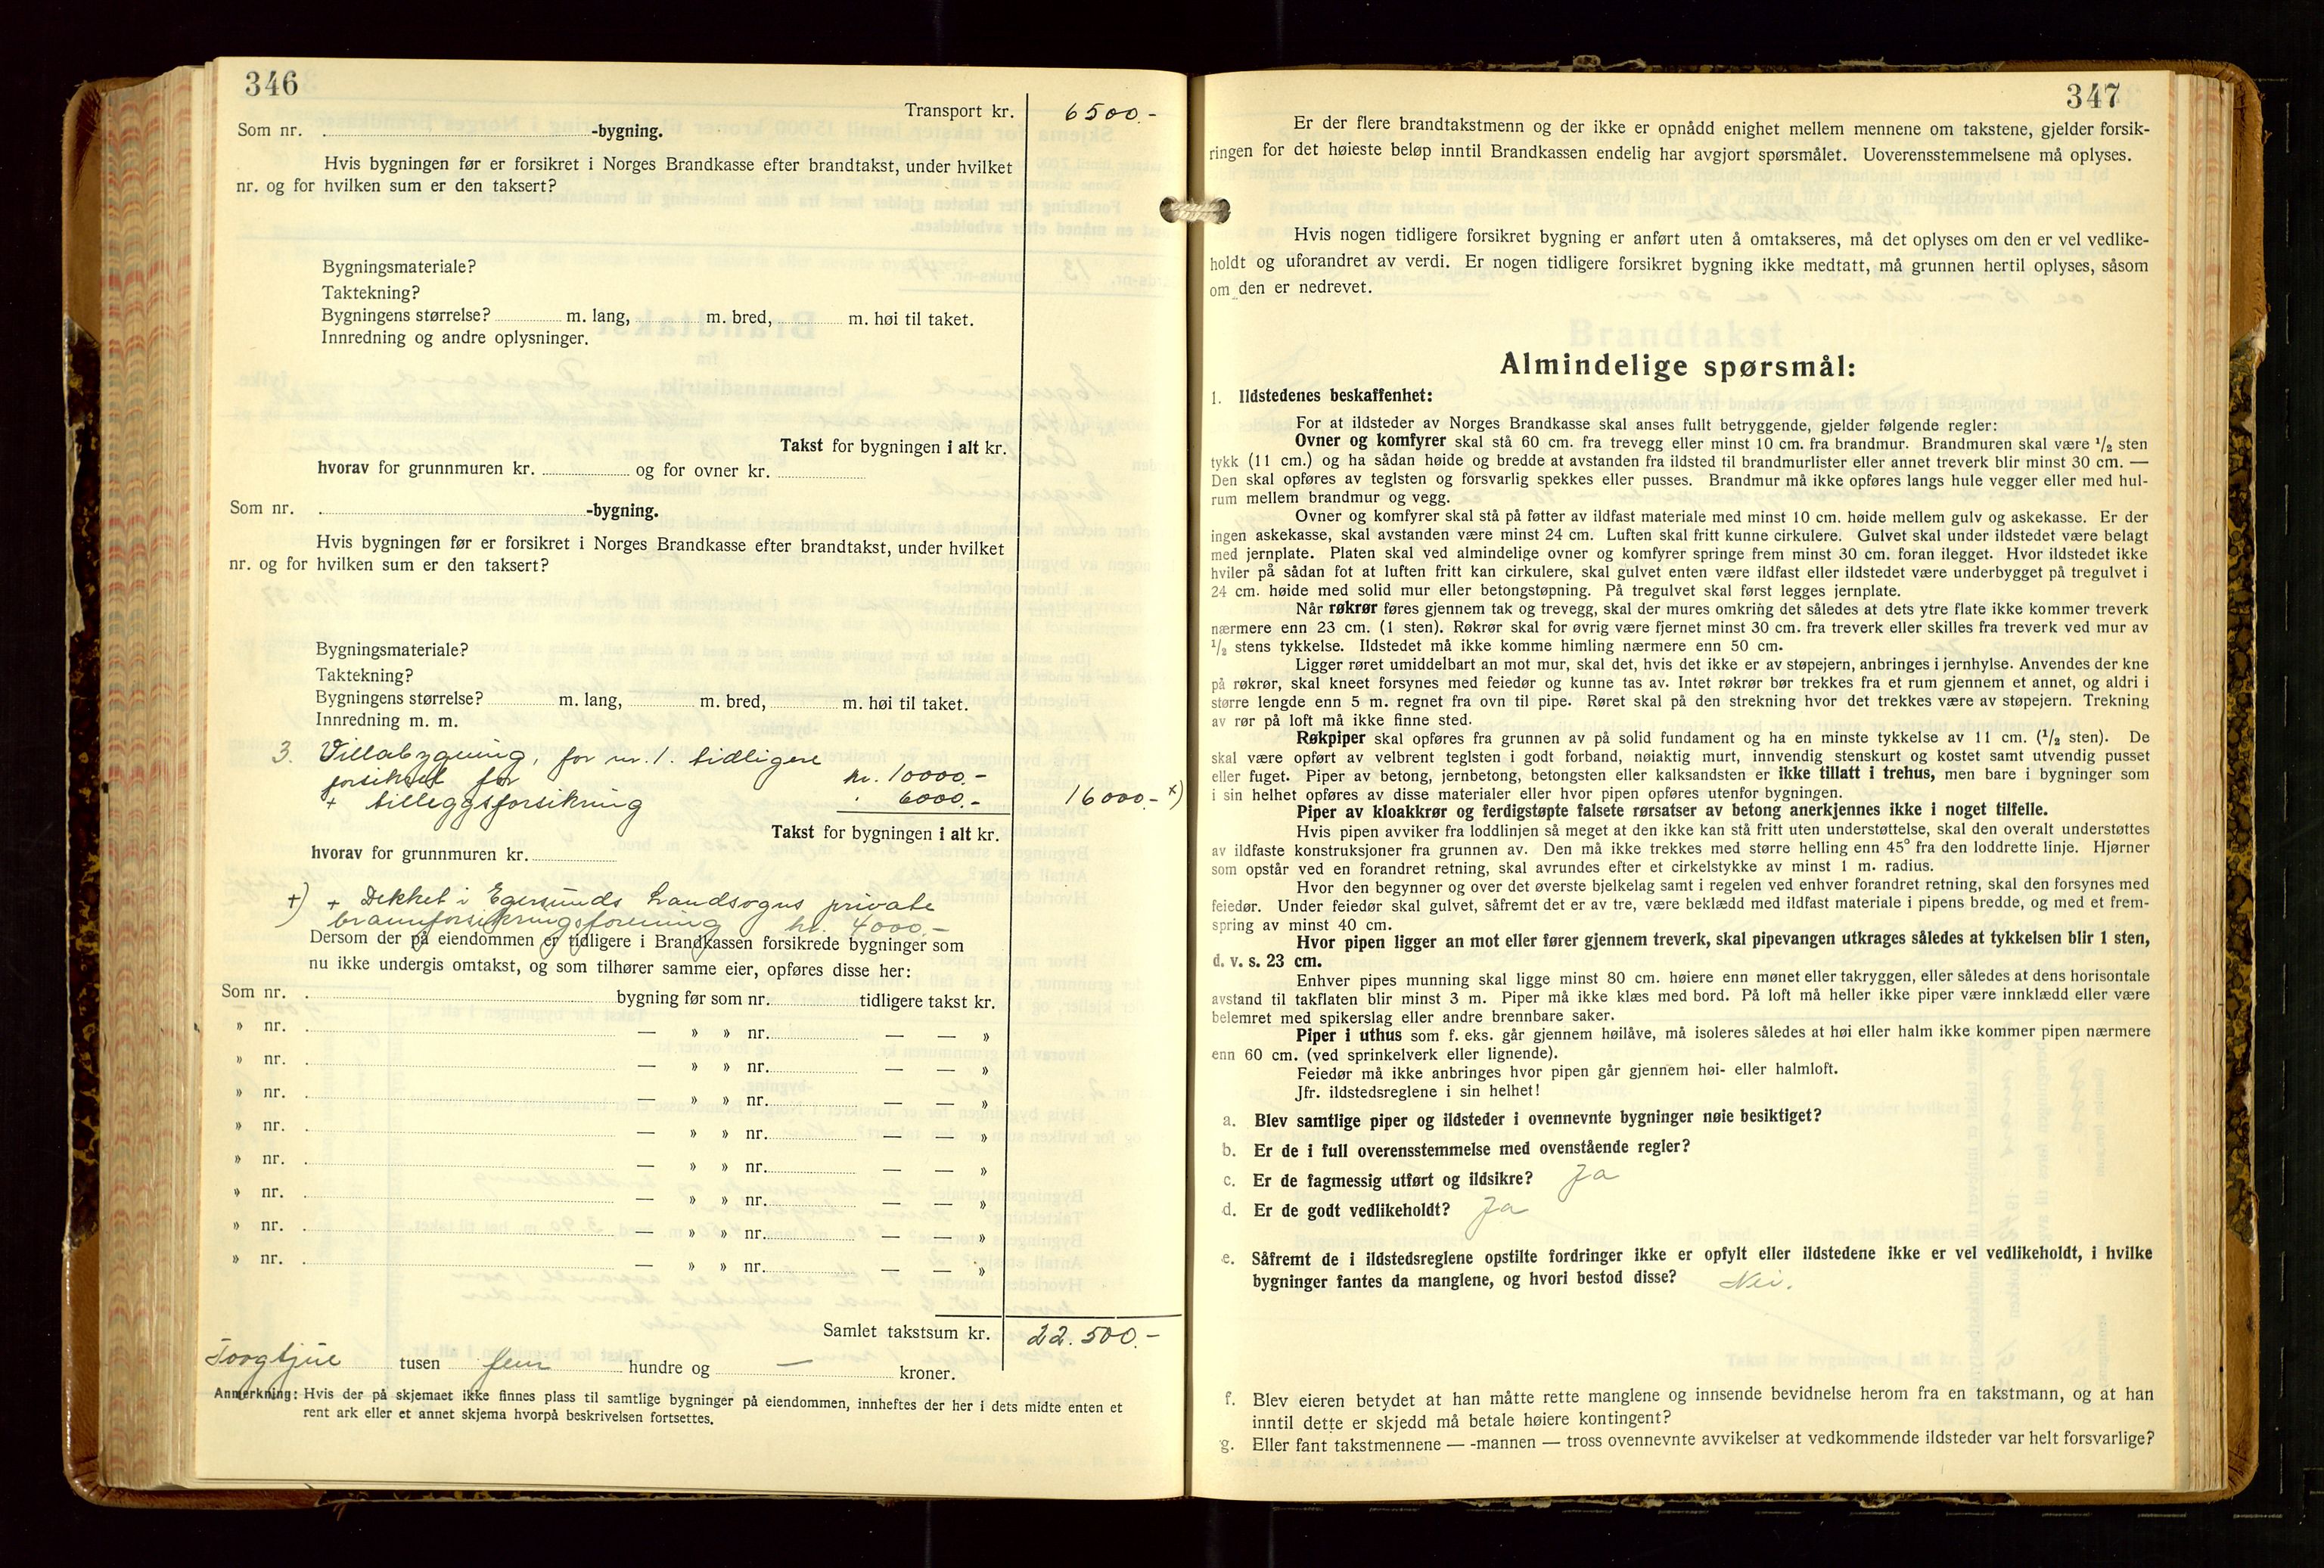 346
Transport kr. 6500.-
Som nr. -bygning.
Hvis bygningen før er forsikret i Norges Brandkasse efter brandtakst, under hvilket
nr. og for hvilken sum er den taksert?
Bygningsmateriale?
Taktekning?
Bygningens størrelse? m. lang, m. bred, m. høi til taket.
Innredning og andre oplysninger.
Takst for bygningen i alt kr.
hvorav for grunnmuren kr. og for ovner kr.
Som nr. -bygning.
Hvis bygningen før er forsikret i Norges Brandkasse efter brandtakst, under hvilket
nr. og for hvilken sum er den taksert?
Bygningsmateriale?
Taktekning?
Bygningens størrelse? m. lang, m. bred, m. høi til taket.
Innredning m. m.
3. Villabygning, for nr. 1. tidligere
forsikret for kr. 10000.-
+ tilleggsforsikring " 6000.- 16000.- x)
Takst for bygningen i alt kr.
hvorav for grunnmuren kr.
+) + Dekket i Egersunds Landsogns private
brannforsikringsforening kr. 4000.-
Dersom der på eiendommen er tidligere i Brandkassen forsikrede bygninger som
nu ikke undergis omtakst, og som tilhører samme eier, opføres disse her:
Som nr. bygning før som nr. tidligere takst kr.
» nr. — » » nr. — — »
» nr. — » » nr. — — »
» nr. — » » nr. — — »
» nr. — » » nr. — — »
» nr. — » » nr. — — »
» nr. — » » nr. — — »
» nr. — » » nr. — — »
» nr. — » » nr. — — »
Samlet takstsum kr. 22.500.-
tusen fem hundre og — kroner.
Anmerkning: Hvis der på skjemaet ikke finnes plass til samtlige bygninger på eiendommen, innheftes der her i dets midte enten et
rent ark eller et annet skjema hvorpå beskrivelsen fortsettes.
347
Er der flere brandtakstmenn og der ikke er opnådd enighet mellem mennene om takstene, gjelder forsik-
ringen for det høieste beløp inntil Brandkassen endelig har avgjort spørsmålet. Uoverensstemmelsene må oplyses.
Hvis nogen tidligere forsikret bygning er anført uten å omtakseres, må det oplyses om den er vel vedlike-
holdt og uforandret av verdi. Er nogen tidligere forsikret bygning ikke medtatt, må grunnen hertil oplyses, såsom
om den er nedrevet.
Almindelige spørsmål:
1. Ildstedenes beskaffenhet:
For at ildsteder av Norges Brandkasse skal anses fullt betryggende, gjelder følgende regler:
Ovner og komfyrer skal stå 60 cm. fra trevegg eller minst 10 cm. fra brandmur. Brandmuren skal være ½ sten
tykk (11 cm.) og ha sådan høide og bredde at avstanden fra ildsted til brandmurlister eller annet treverk blir minst 30 cm. —
Den skal opføres av teglsten og forsvarlig spekkes eller pusses. Brandmur må ikke opføres langs hule vegger eller med hul-
rum mellem brandmur og vegg.
Ovner og komfyrer skal stå på føtter av ildfast materiale med minst 10 cm. høide mellem gulv og askekasse. Er der
ingen askekasse, skal avstanden være minst 24 cm. Luften skal fritt kunne cirkulere. Gulvet skal under ildstedet være belagt
med jernplate. Platen skal ved almindelige ovner og komfyrer springe frem minst 30 cm. foran ilegget. Hvor ildstedet ikke
hviler på sådan fot at luften fritt kan cirkulere, skal gulvet enten være ildfast eller ildstedet være underbygget på tregulvet i
24 cm. høide med solid mur eller betongstøpning. På tregulvet skal først legges jernplate.
Når røkrør føres gjennem tak og trevegg, skal der mures omkring det således at dets ytre flate ikke kommer treverk
nærmere enn 23 cm. (1 sten). Røkrør skal for øvrig være fjernet minst 30 cm. fra treverk eller skilles fra treverk ved mur av
½ stens tykkelse. Ildstedet må ikke komme himling nærmere enn 50 cm.
Ligger røret umiddelbart an mot mur, skal det, hvis det ikke er av støpejern, anbringes i jernhylse. Anvendes der kne
på røkrør, skal kneet forsynes med feiedør og kunne tas av. Intet røkrør bør trekkes fra et rum gjennem et annet, og aldri i
større lengde enn 5 m. regnet fra ovn til pipe. Røret skal på den strekning hvor det trekkes være av støpejern. Trekning
av rør på loft må ikke finne sted.
Røkpiper skal opføres fra grunnen av på solid fundament og ha en minste tykkelse av 11 cm. (½ sten). De
skal være opført av velbrent teglsten i godt forband, nøiaktig murt, innvendig stenskurt og kostet samt utvendig pusset
eller fuget. Piper av betong, jernbetong, betongsten eller kalksandsten er ikke tillatt i trehus, men bare i bygninger som
i sin helhet opføres av disse materialer eller hvor pipen opføres utenfor bygningen.
Piper av kloakkrør og ferdigstøpte falsete rørsatser av betong anerkjennes ikke i noget tilfelle.
Hvis pipen avviker fra loddlinjen så meget at den ikke kan stå fritt uten understøttelse, skal den overalt understøttes
av ildfaste konstruksjoner fra grunnen av. Den må ikke trekkes med større helling enn 45° fra den loddrette linje. Hjørner
som opstår ved en forandret retning, skal avrundes efter et cirkelstykke av minst 1 m. radius.
Hvor den begynner og over det øverste bjelkelag samt i regelen ved enhver forandret retning, skal den forsynes med
feiedør. Under feiedør skal gulvet, såfremt det er av tre, være beklædd med ildfast materiale i pipens bredde, og med et frem-
spring av minst 40 cm.
Hvor pipen ligger an mot eller fører gjennem treverk, skal pipevangen utkrages således at tykkelsen blir 1 sten,
d. v. s. 23 cm.
Enhver pipes munning skal ligge minst 80 cm. høiere enn mønet eller takryggen, eller således at dens horisontale
avstand til takflaten blir minst 3 m. Piper må ikke klæs med bord. På loft må heller ikke piper være innklædd eller være
belemret med spikerslag eller andre brennbare saker.
Piper i uthus som f. eks. går gjennem høilåve, må isoleres således at høi eller halm ikke kommer pipen nærmere
enn 60 cm. (ved sprinkelverk eller lignende).
Feiedør må ikke anbringes hvor pipen går gjennem høi- eller halmloft.
Jfr. ildstedsreglene i sin helhet!
a. Blev samtlige piper og ildsteder i ovennevnte bygninger nøie besiktiget?
b. Er de i full overensstemmelse med ovenstående regler?
c. Er de fagmessig utført og ildsikre? Ja
d. Er de godt vedlikeholdt? Ja
e. Såfremt de i ildstedsreglene opstilte fordringer ikke er opfylt eller ildstedene ikke er vel vedlikeholdt, i hvilke
bygninger fantes da manglene, og hvori bestod disse? Nei.
f. Blev eieren betydet at han måtte rette manglene og innsende bevidnelse herom fra en takstmann, og at han
inntil dette er skjedd må betale høiere kontingent?
g. Eller fant takstmennene — -mannen — tross ovennevnte avvikelser at vedkommende ildsteder var helt forsvarlige?